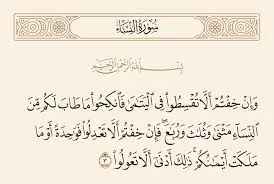 سُورَةُ النِّسَاءِ
بِسْمِ اللَّهِ الرَّحْمَٰنِ الرَّحِيمِ
وَإِنْ خِفْتُمْ أَلَّا تُقْسِطُوا۟ فِى ٱلْيَتَٰمَىٰ فَٱنكِحُوا۟ مَا طَابَ لَكُم مِّنَ
ٱلنِّسَآءِ مَثْنَىٰ وَثُلَٰثَ وَرُبَٰعَ ۖ فَإِنْ خِفْتُمْ أَلَّا تَعْدِلُوا۟ فَوَٰحِدَةً أَوْ مَا
مَلَكَتْ أَيْمَٰنُكُمْ ۚ ذَٰلِكَ أَدْنَىٰٓ أَلَّا تَعُولُوا۟ ٣